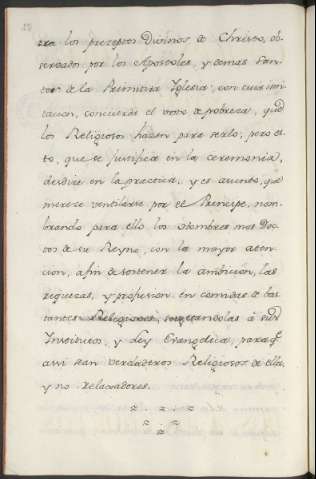 tra los preceptos Divinos de Christo, ob-
servados por los Apostoles, y demas San-
tos de la Primitiva Iglesia, con cuia imi-
tacion, concuerda el voto de pobreza, que
los Religiosos hazen para serlo; pero es-
to, que se justifica en la ceremonia,
desdize en la practica, y es asunto, que
merece ventilarse por el Principe, nom-
brando para ello los Hombres mas Doc-
tos de su Reyno, con la mayor aten-
cion, afin de contener la ambicion, las
riquezas, y profusion en comidas de bas-
tantes Religiosos, sugetandolas à su
Instituto, y Ley Evangelica, para q.e
assi sean verdaderos Religiosos de ella,
y no relaxadores.